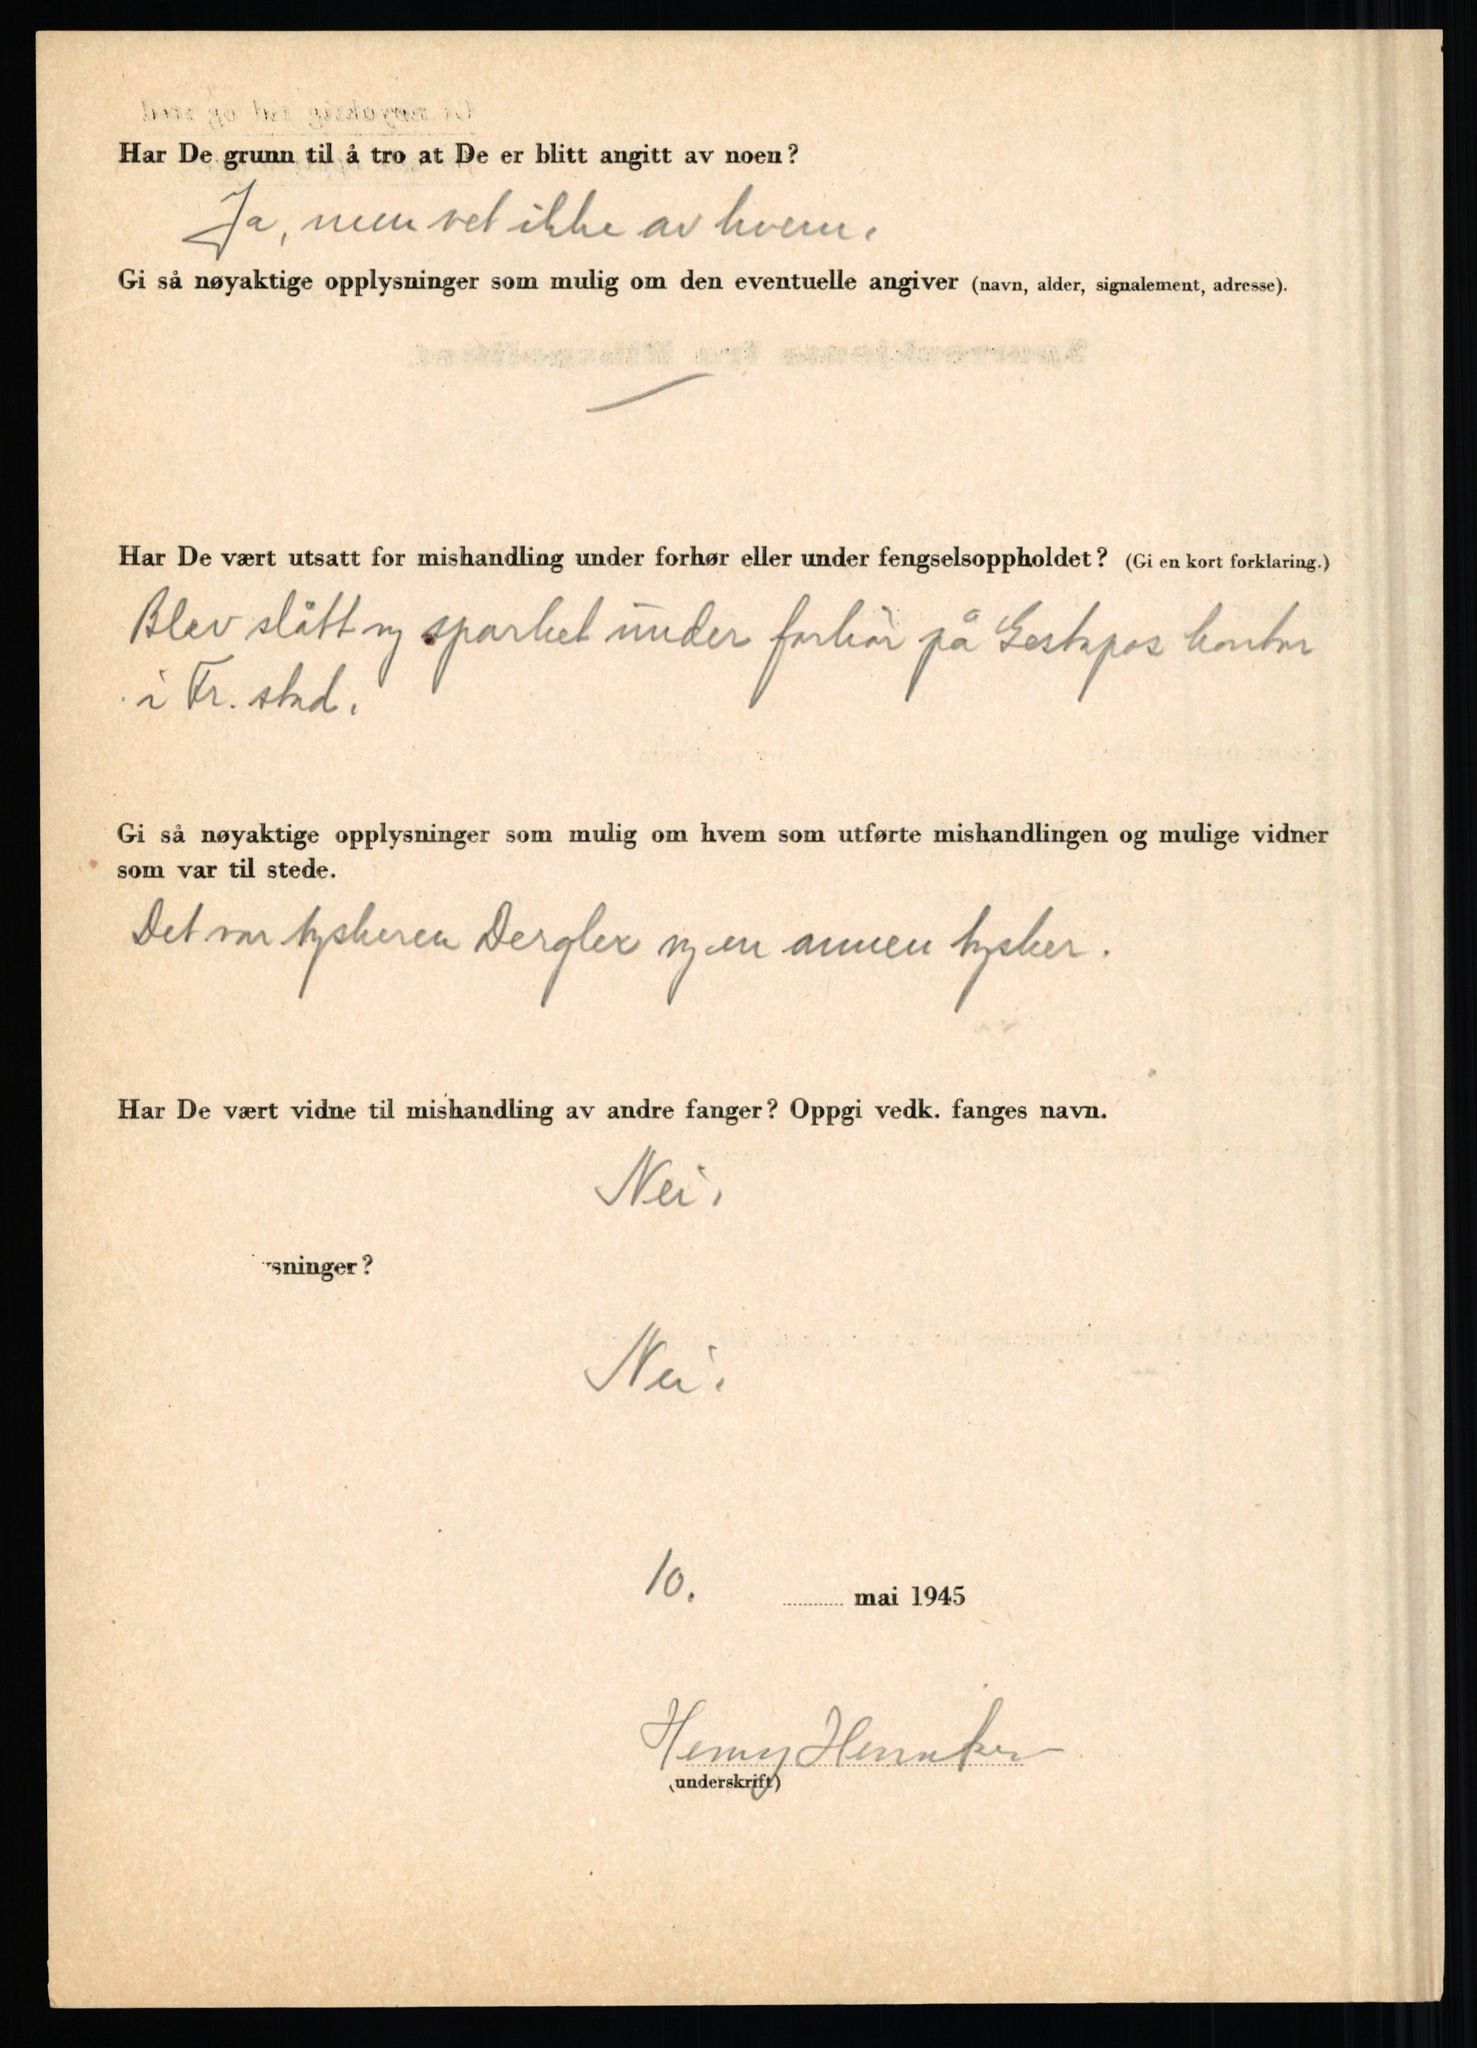 Har De grunn til å tro at De er blitt angitt av noen?
Ja, men vet ikke av hvem.
Gi så nøyaktige opplysninger som mulig om den eventuelle angiver (navn, alder, signalement, adresse).
Har De vært utsatt for mishandling under forhør eller under fengselsoppholdet? (Gi en kort forklaring.)
Blev slått og sparket under forhör på Gestapos kontor
i Fr. stad.
Gi så nøyaktige opplysninger som mulig om hvem som utførte mishandlingen og mulige vidner
som var til stede.
Det var tyskeren Dergler og en annen tysker.
Har De vært vidne til mishandling av andre fanger? Oppgi vedk. fanges navn.
Nei.
ysninger?
Nei.
10. mai 1945
Henry
(underskrift)